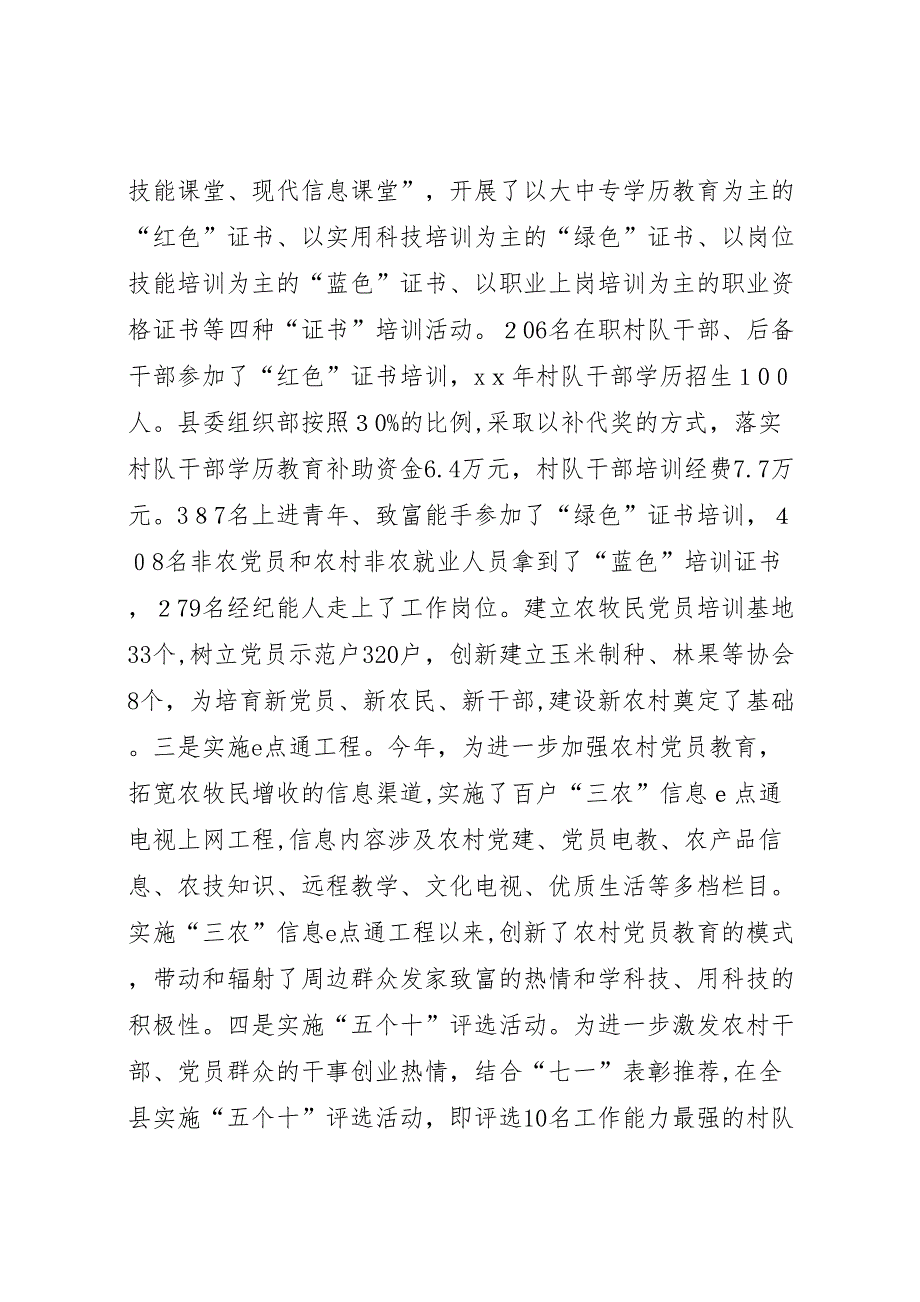 技能课堂、现代信息课堂”，开展了以大中专学历教育为主的
“红色”证书、以实用科技培训为主的“绿色”证书、以岗位
技能培训为主的“蓝色”证书、以职业上岗培训为主的职业资
格证书等四种“证书”培训活动。206名在职村队干部、后备
干部参加了“红色”证书培训，xx年村队干部学历招生100
人。县委组织部按照30%的比例,采取以补代奖的方式，落实
村队干部学历教育补助资金6.4万元，村队干部培训经费7.7万
元。387名上进青年、致富能手参加了“绿色”证书培训，4
08名非农党员和农村非农就业人员拿到了“蓝色”培训证书
，279名经纪能人走上了工作岗位。建立农牧民党员培训基地
33个,树立党员示范户320户，创新建立玉米制种、林果等协会
8个，为培育新党员、新农民、新干部,建设新农村奠定了基础
。三是实施e点通工程。今年，为进一步加强农村党员教育，
拓宽农牧民增收的信息渠道,实施了百户“三农”信息e点通
电视上网工程,信息内容涉及农村党建、党员电教、农产品信
息、农技知识、远程教学、文化电视、优质生活等多档栏目。
实施“三农”信息e点通工程以来,创新了农村党员教育的模式
，带动和辐射了周边群众发家致富的热情和学科技、用科技的
积极性。四是实施“五个十”评选活动。为进一步激发农村干
部、党员群众的干事创业热情，结合“七一”表彰推荐,在全
县实施“五个十”评选活动，即评选10名工作能力最强的村队